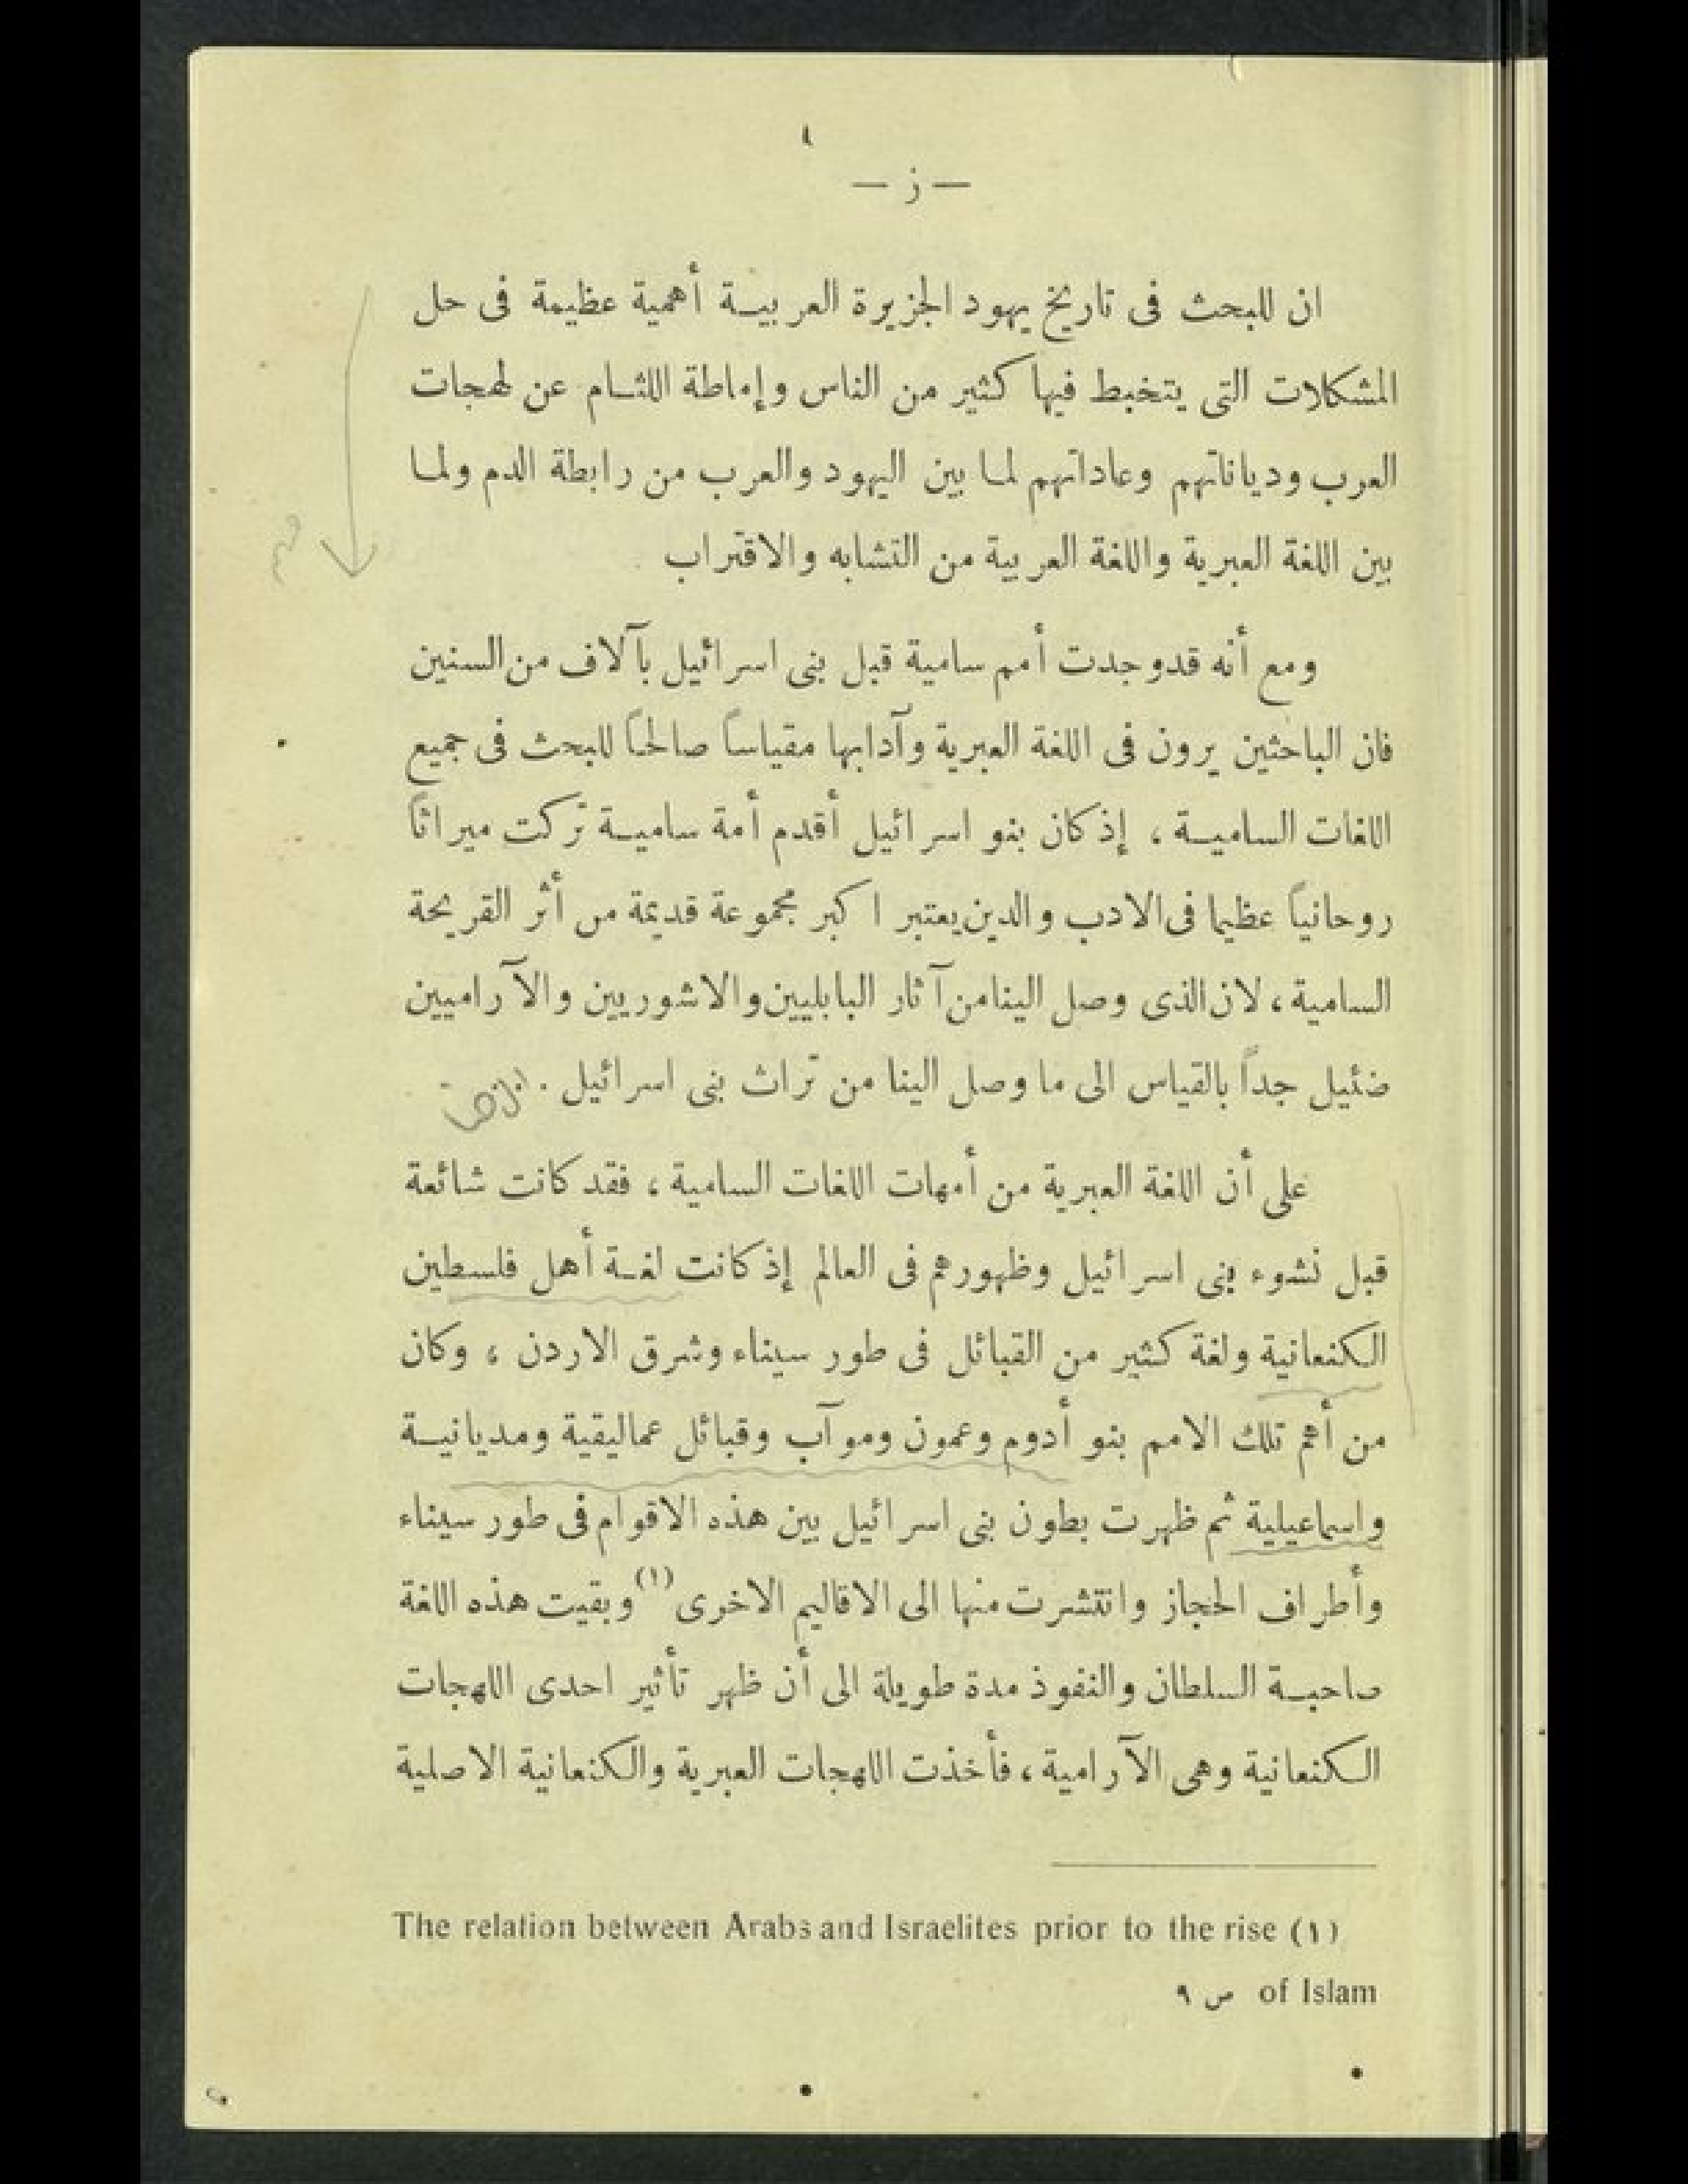 — ز —
ان للبحث فى تاريخ يهود الجزيرة العربيـة أهمية عظيمة فى حل
المشكلات التى يتخبط فيها كثير من الناس وإماطة اللثـام عن لهجات
العرب ودياناتهم وعاداتهم لما بين اليهود والعرب من رابطة الدم ولما
بين اللغة العبرية واللغة العربية من التشابه والاقتراب
ومع أنه قدوجدت أمم سامية قبل بنى اسرائيل بآلاف من السنين
فان الباحثين يرون فى اللغة العبرية وآدابها مقياساً صالحاً للبحث فى جميع
اللغات الساميـة ، إذ كان بنو اسرائيل أقدم أمة ساميـة تركت ميراثاً
روحانياً عظيما فى الادب والدين يعتبر اكبر مجموعة قديمة من أثر القريحة
السامية ، لان الذى وصل الينا من آثار البابليين والاشوريين والآراميين
ضئيل جداً بالقياس الى ما وصل الينا من تراث بنى اسرائيل .
على أن اللغة العبرية من أمهات اللغات السامية ، فقد كانت شائعة
قبل نشوء بنى اسرائيل وظهورهم فى العالم إذ كانت لغـة أهل فلسطين
الكنعانية ولغة كثير من القبائل فى طور سيناء وشرق الاردن ، وكان
من أهم تلك الامم بنو أدوم وعمون وموآب وقبائل عماليقية ومديانيـة
واسماعيلية ثم ظهرت بطون بنى اسرائيل بين هذه الاقوام فى طور سيناء
وأطراف الحجاز وانتشرت منها الى الاقاليم الاخرى (١) وبقيت هذه اللغة
صاحبـة السلطان والنفوذ مدة طويلة الى أن ظهر تأثير احدى اللهجات
الكنعانية وهى الآرامية ، فأخذت اللهجات العبرية والكنعانية الاصلية
The relation between Arabs and Israelites prior to the rise (١)
of Islam ص ٩